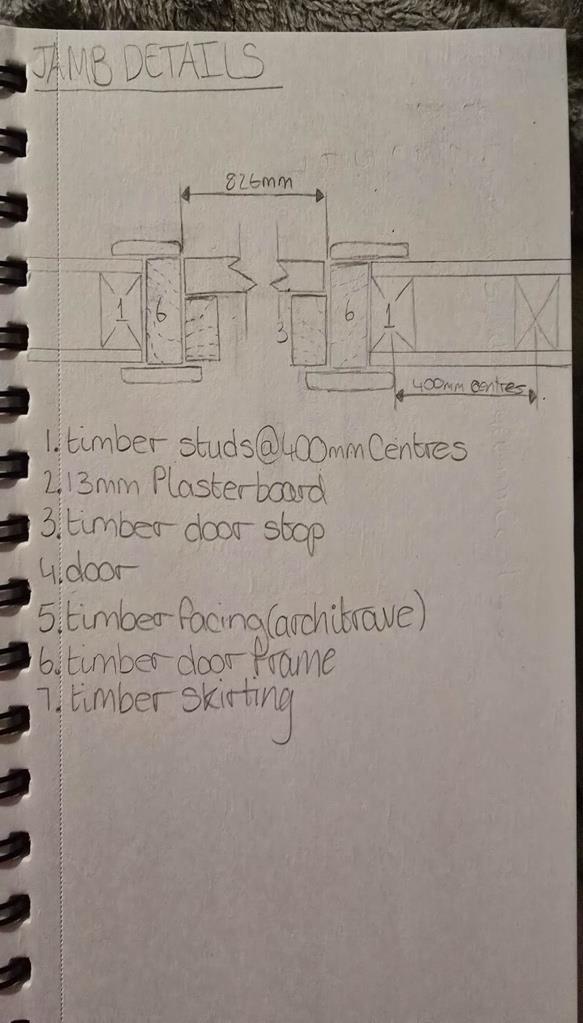 JAMB DETAILS
826mm
1 6 3 6 1
400mm centres
1. timber studs@400mm Centres
2. 13mm Plasterboard
3. timber door stop
4. door
5. timber facing (architrave)
6. timber door frame
7. timber skirting